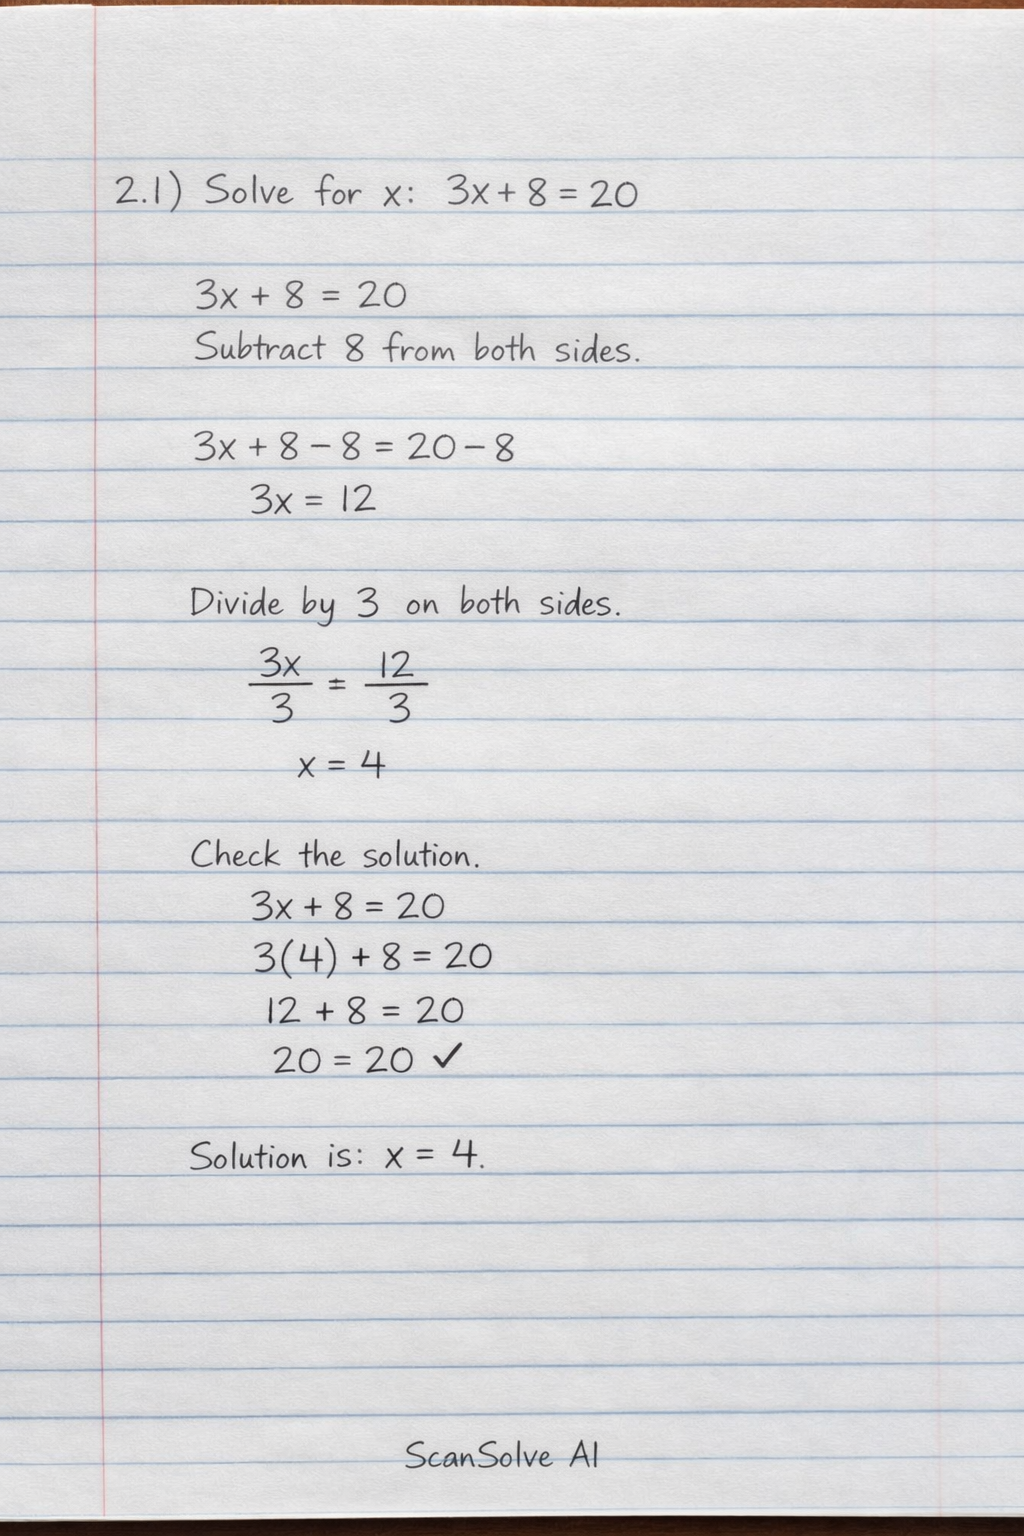 2.1) Solve for x: 3x + 8 = 20
3x + 8 = 20
Subtract 8 from both sides.
3x + 8 − 8 = 20 − 8
3x = 12
Divide by 3 on both sides.
3x/3 = 12/3
x = 4
Check the solution.
3x + 8 = 20
3(4) + 8 = 20
12 + 8 = 20
20 = 20 ✓
Solution is: x = 4.
ScanSolve AI